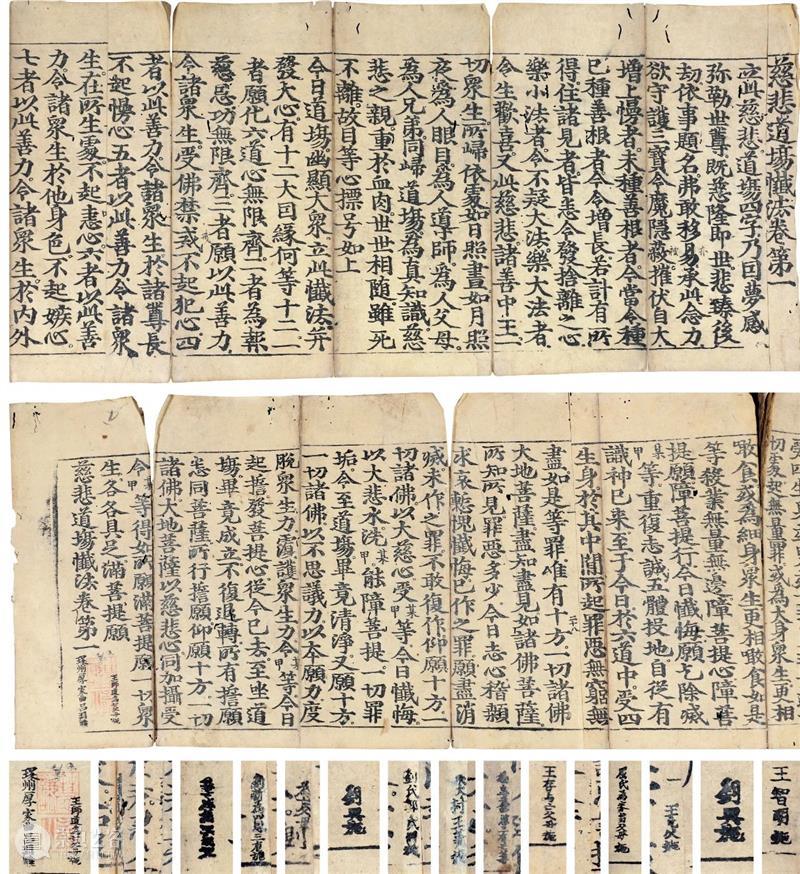 慈悲道場懺法卷第一
立此慈悲道場四字乃因夢感
彌勒世尊既慈隆即世悲臻後
劫依事題名弗敢移易承此念力
欲守護三寶令魔隱蔽摧伏自大
增上慢者未種善根者今當令種
已種善根者今令增長若計有所
得住諸見者皆悉令發捨離之心
樂小法者令不疑大法樂大法者
令生歡喜又此慈悲諸善中王一
切衆生所歸依處如日照晝如月照
夜為人眼目為人導師為人父母
為人兄弟同歸道場為真知識慈
悲之親重於血肉世世相隨雖死
不離故目等心標号如上
今日道場幽顯大衆立此懺法并
發大心有十二大因緣何等十二一
者願化六道心無限齊二者為報
慈恩功無限齊三者願以此善力
令諸衆生受佛禁戒不起犯心四
者以此善力令諸衆生於諸尊長
不起慢心五者以此善力令諸衆
生在所生處不起恚心六者以此善
力令諸衆生於他身色不起嫉心
七者以此善力令諸衆生於內外
切處起無量罪或為大身衆生更相
噉食或為細身衆生更相噉食如是
等殺業無量無邊障菩提心障菩
提願障菩提行今日懺悔願乞除滅
某甲等重復志誠五體投地自從有
識神已來至于今日於六道中受四
生身於其中間所起罪惡無窮無
盡如是等罪唯有十方一切諸佛
大地菩薩盡知盡見如諸佛菩薩
所知所見罪惡多少今日志心稽顙
求哀慙愧懺悔已作之罪願盡消
滅未作之罪不敢復作仰願十方一
切諸佛以大慈心受某甲等今日懺悔
以大悲水洗某甲能障菩提一切罪
垢令至道場畢竟清淨又願十方
一切諸佛以不思議力以本願力度
脫衆生力覆護衆生力令某甲等今日
起誓發菩提心從今已去至坐道
場畢竟成立不復退轉所有誓願
悉同菩薩所行誓願仰願十方一切
諸佛大地菩薩以慈悲心同加攝受
令某甲等得如所願滿菩提願一切衆
生各各具足滿菩提願
慈悲道場懺法卷第一
王智明施
劉異施
王存為亡父母施
劉異施